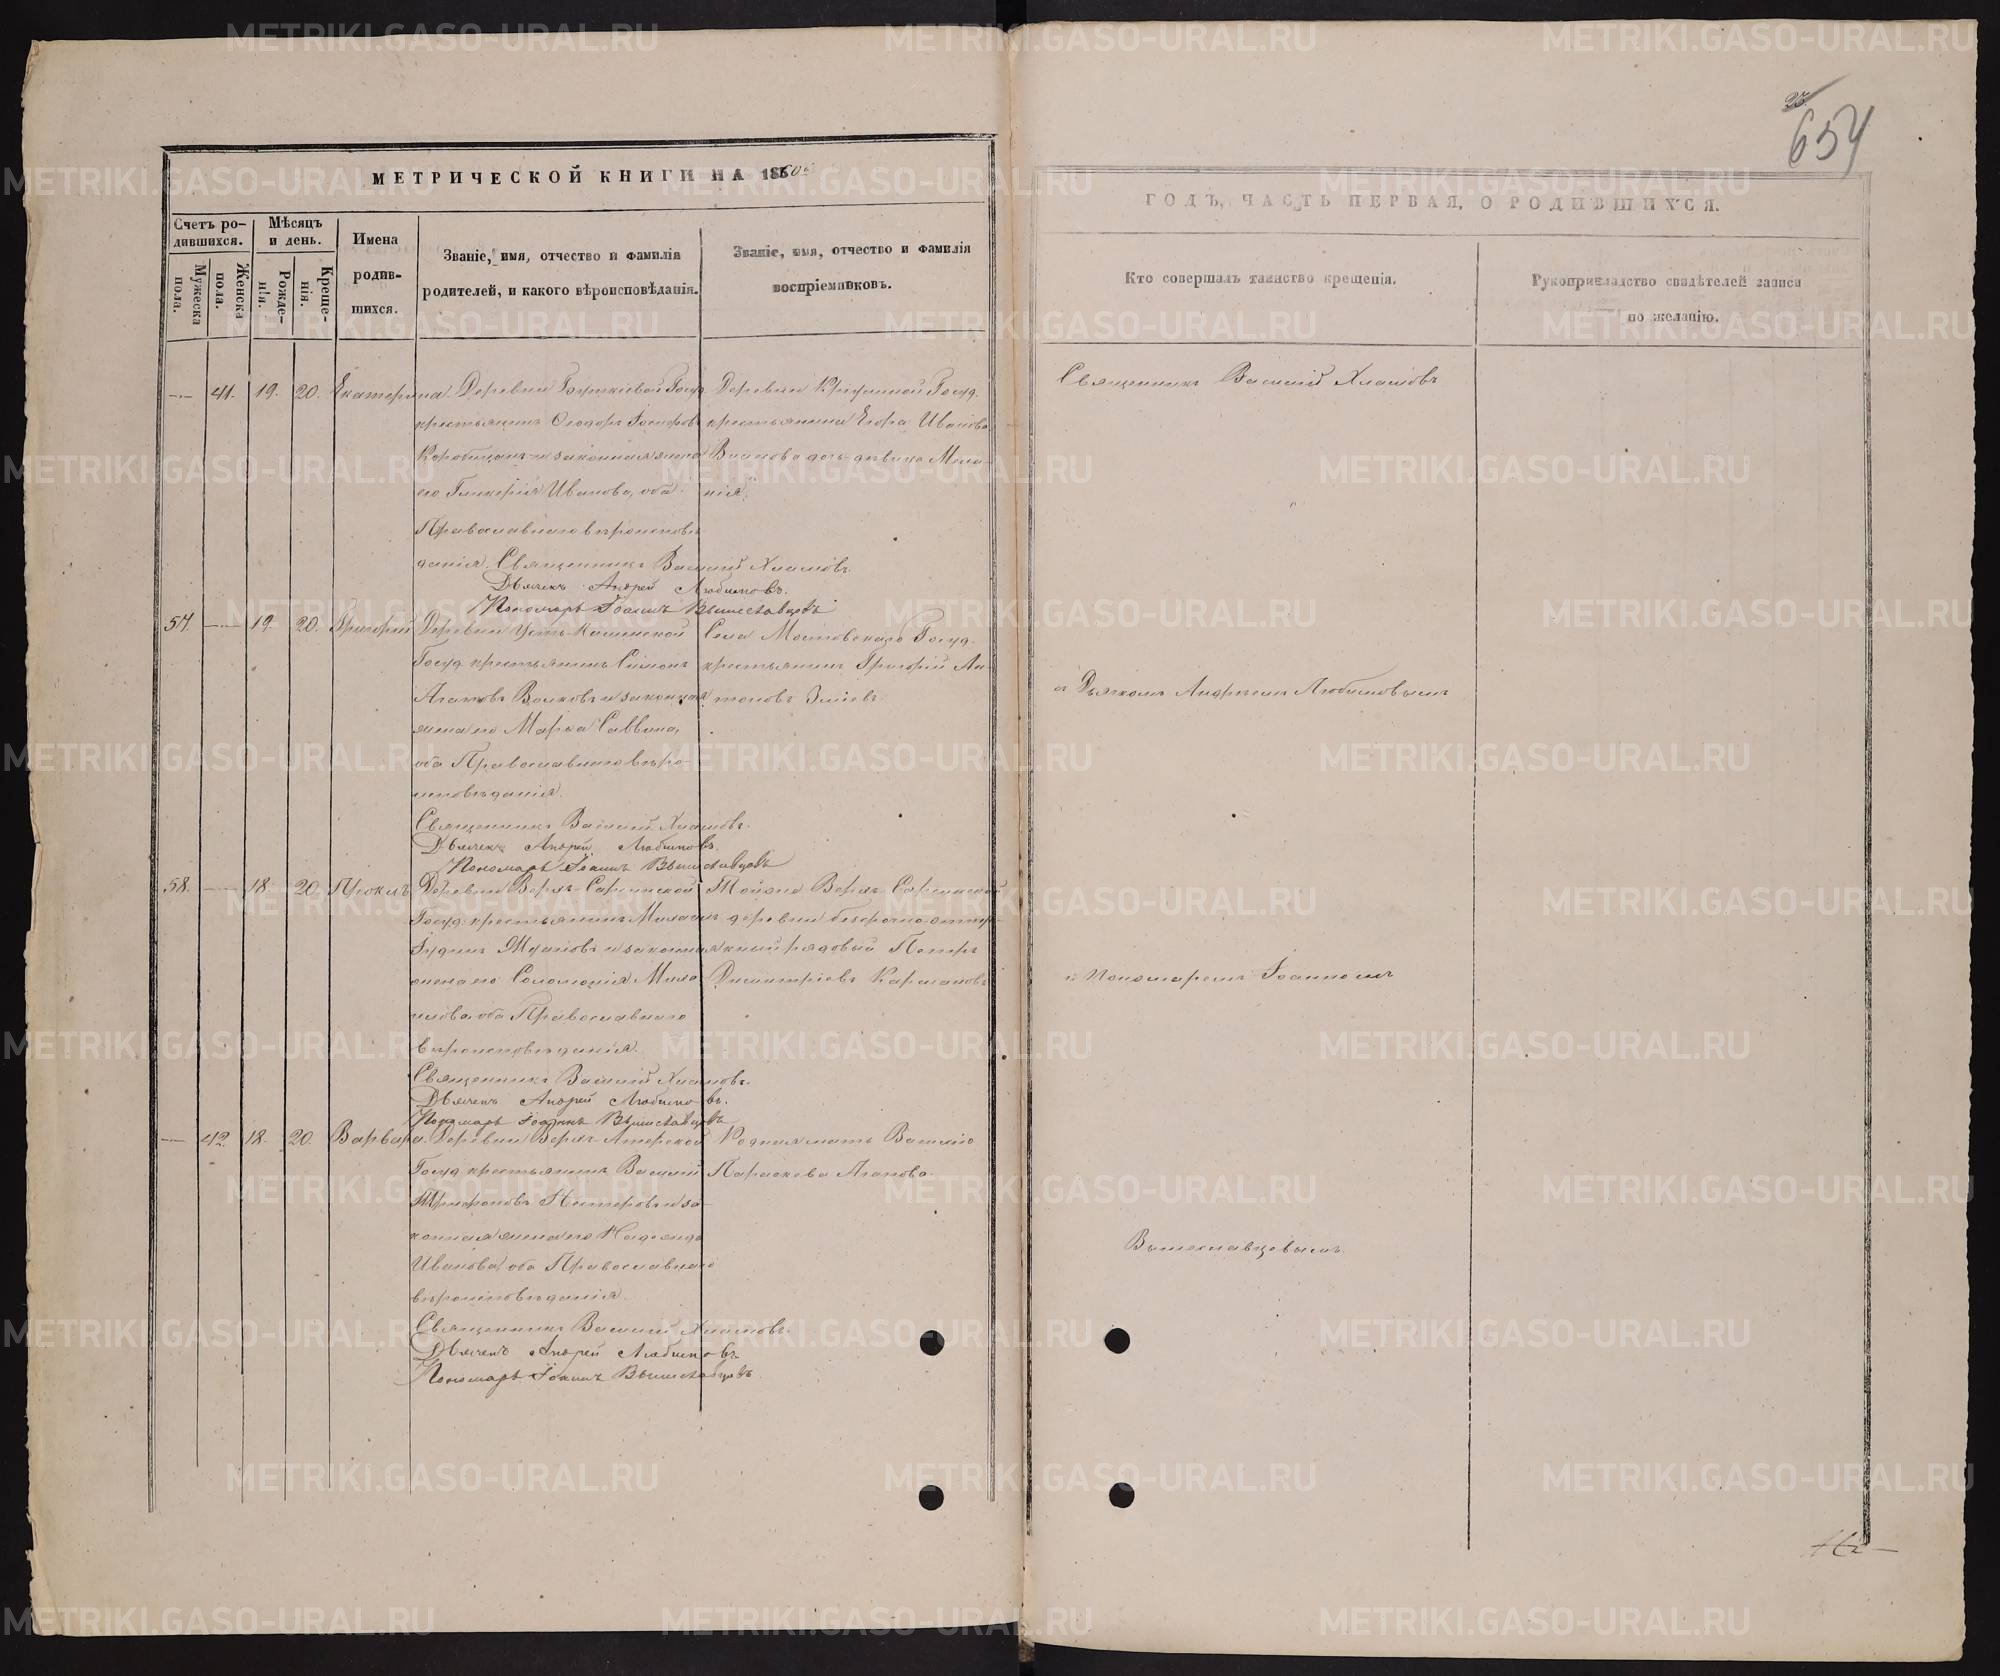 МЕТРИЧЕСКОЙ КНИГИ НА 1860й
ГОДЪ, ЧАСТЬ ПЕРВАЯ, О РОДИВШИХСЯ.
654
Счетъ родившихся.
Мужеска пола.
Женска пола.
Мѣсяцъ и день.
Рожденія.
Крещенія.
Имена родившихся.
Званіе, имя, отчество и фамилія
родителей, и какого вѣроисповѣданія.
Званіе, имя, отчество и фамилія
воспріемниковъ.
Кто совершалъ таинство крещенія.
Рукоприкладство свидѣтелей записи
по желанію.
41. 19. 20. Екатерина
Деревни Госуд.
крестьянинъ Ѳеодоръ Іосифовъ
и законная жена
его Гликерія Иванова, оба
Православнаго вѣроисповѣ
данія. Священникъ Василій Хламовъ.
Дьячекъ Андрей Любимовъ.
Пономарь Іоаннъ Вышеславцевъ
Деревни Госуд.
крестьянина Егора Иванова
дочь девица Мела-
нія.
Священникъ Василій Хламовъ
57. 19. 20. Григорій
Деревни Усть-
Госуд. крестьянинъ Симонъ
Агаповъ Волковъ и законная
жена его Марѳа Саввина,
оба Православнаго вѣро-
исповѣданія.
Священникъ Василій Хламовъ.
Дьячекъ Андрей Любимовъ.
Пономарь Іоаннъ Вышеславцевъ
Села Мостовскаго Госуд.
крестьянинъ Григорій Ан-
тоновъ Зміевъ
съ Дьячкомъ Андреемъ Любимовымъ
58. 18. 20.
Деревни Верхъ-Саринской
Госуд. крестьянинъ
и законная
жена его Соломонія Миха-
илова, оба Православнаго
вѣроисповѣданія.
Священникъ Василій Хламовъ.
Дьячекъ Андрей Любимовъ.
Пономарь Іоаннъ Вышеславцевъ
Тойже Верхъ-Саринской
деревни безсрочноотпу-
скный рядовый Петръ
Димитріевъ
и Пономаремъ Іоанномъ
42. 18. 20. Варвара
Деревни Верхъ-
Госуд. крестьянинъ Василій
Трифоновъ Нестеровъ и за-
конная жена его Надежда
Иванова, оба Православнаго
вѣроисповѣданія.
Священникъ Василій Хламовъ.
Дьячекъ Андрей Любимовъ
Пономарь Іоаннъ Вышеславцевъ.
Родная мать Василію
Параскева Агапова.
Вышеславцевымъ.
METRIKI.GASO-URAL.RU